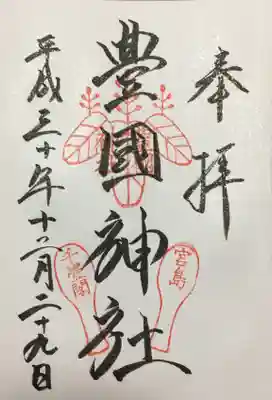 奉拝
豊國神社
平成三十年十一月二十九日
宮島
千畳閣